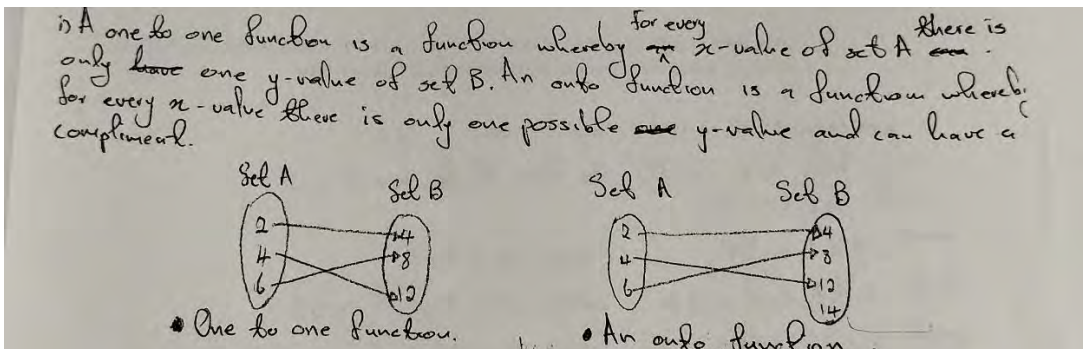 i) A one to one function is a function whereby for every x-value of set A there is
only one y-value of set B. An onto function is a function whereby
for every x-value there is only one possible y-value and can have a
compliment.
Set A Set B Set A Set B
2 4 2 4
4 8 4 8
6 12 6 12
14
• One to one function. • An onto function